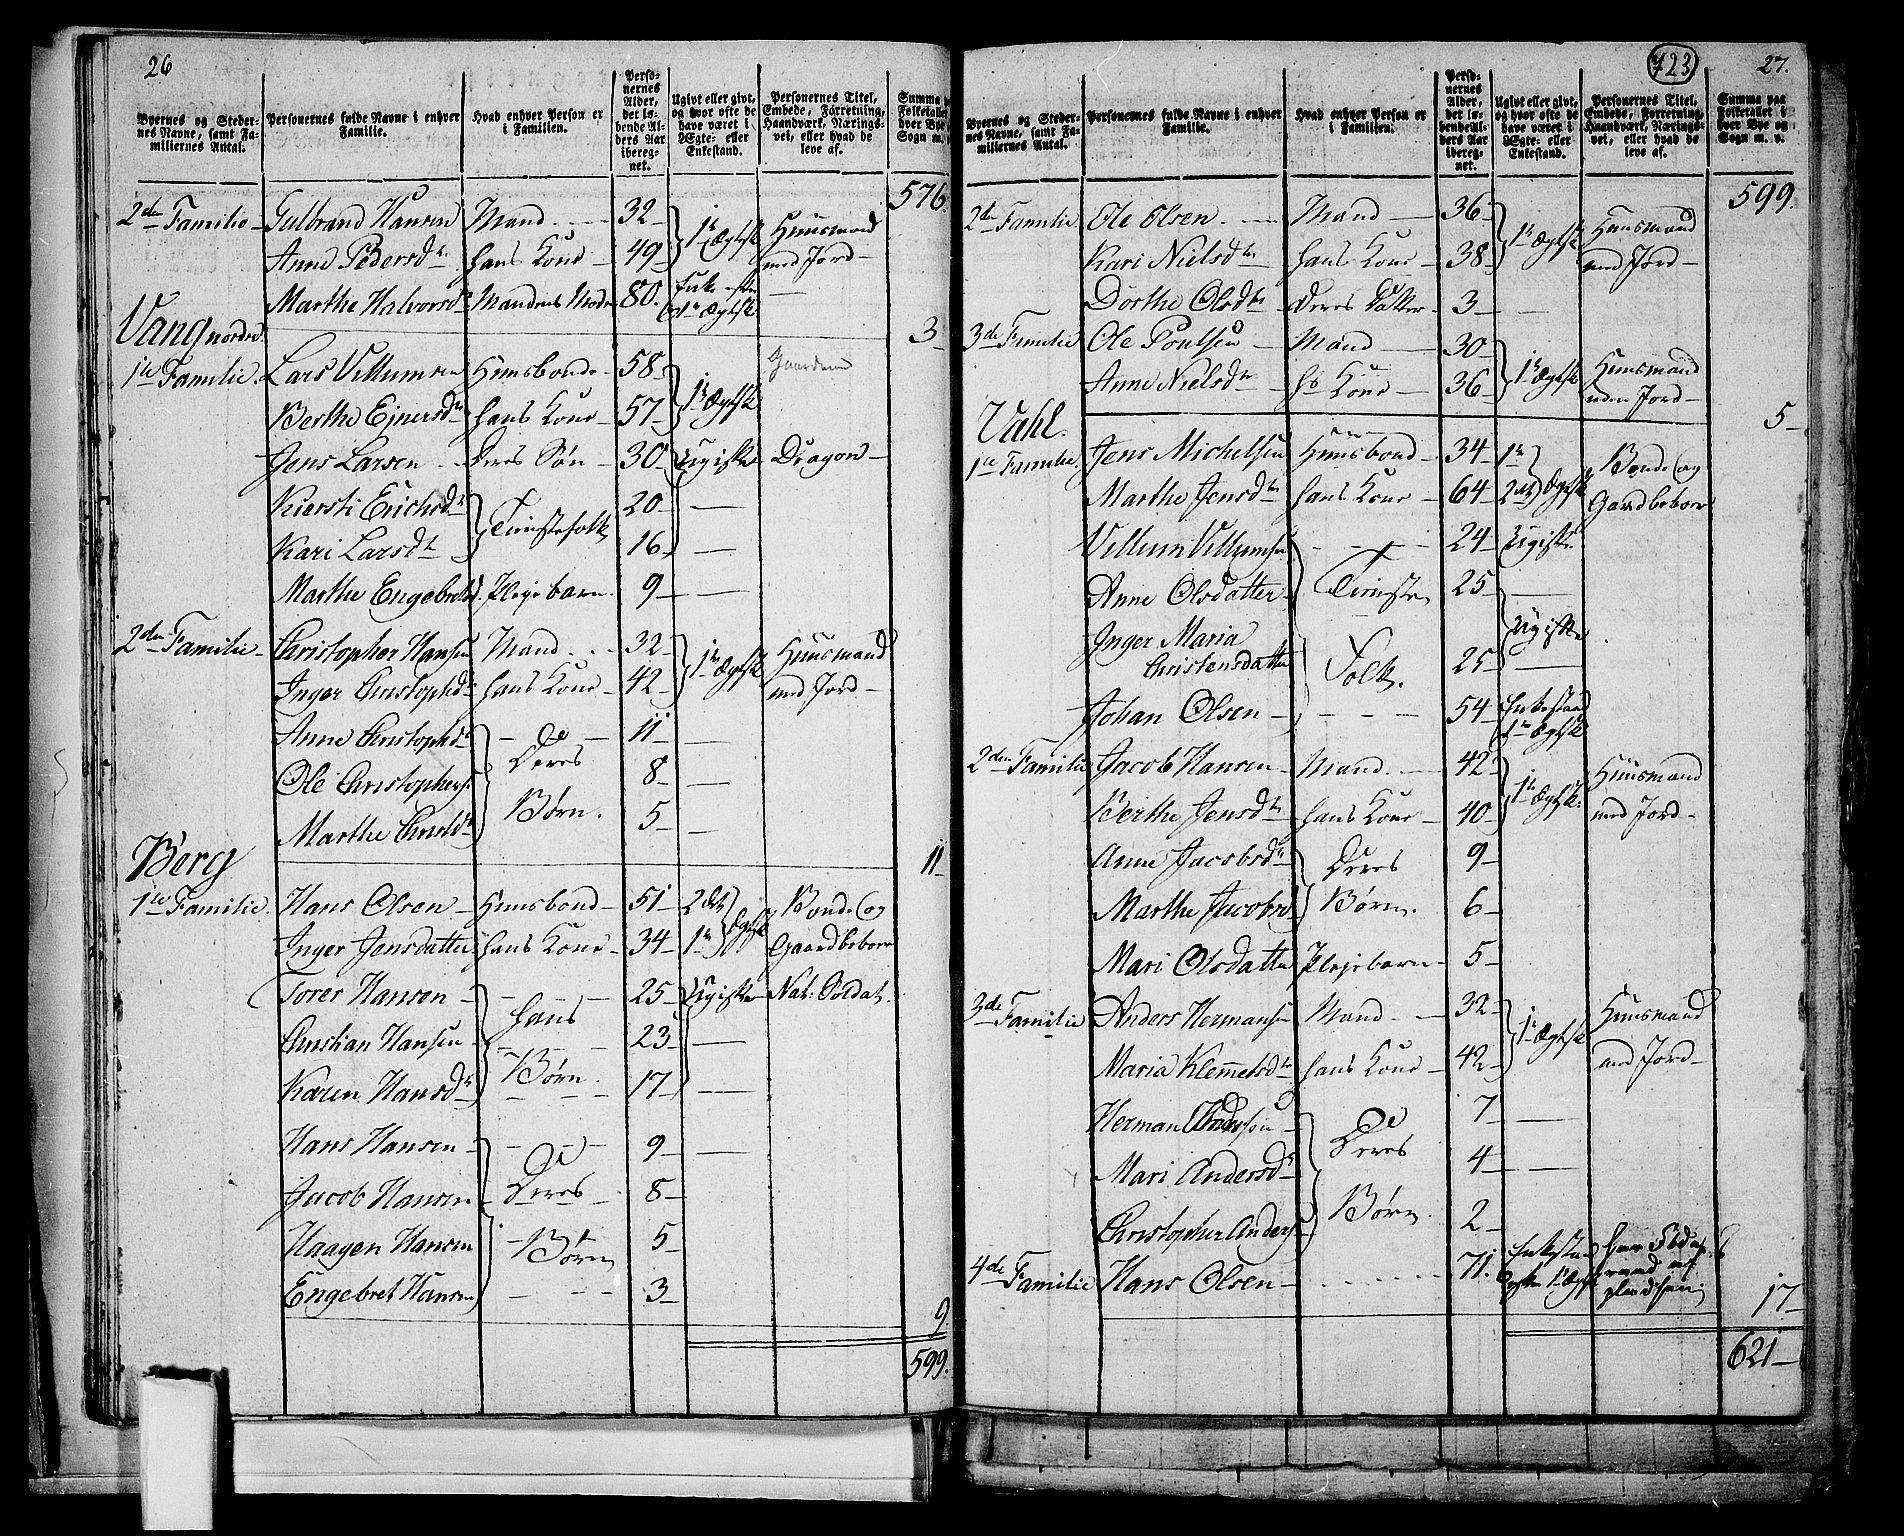 26
Byernes og Steder-
nes Navne, samt Fa-
miliernes Antal.
Personernes fulde Navne i enhver
Familie.
Hvad enhver Person er
i Familien.
Perso-
nernes
Alder,
det lø-
bende Al-
ders Aar
ibereg-
net.
Ugivt eller givt,
og hvor ofte de
have været i
Ægte- eller
Enkestand.
Personernes Titel,
Embede, Forretning,
Haandværk, Nærings-
vei, eller hvad de
leve af.
Summa
Folketallet i
hver Bye og
Sogn m. v.
576.
2den Familie - Gulbrand Hansen Mand - 32 - 1te Ægtsk Huusmand
Anne Pedersdtr hans Kone - 49 - med Jord -
Marthe Halvorsdr Mandens Moder 80. Enke efter 1te Ægtsk -
Vang nordre. 3
1te Familie. Lars Villumsen Huusbonde - 58 - 1te Ægtsk Gaardmand
Berthe Ejnersdtr hans Kone - 57 -
Jens Larsen - Deres Søn - 30 - Ugifte - Dragon -
Kiersti Erichsdtr Tienstefolk 20 - -
Kari Larsdtr 16 - -
Marthe Engebretsd. Plejebarn. 9 - -
2den Familie - Christopher Hansen Mand - 32 - 1te Ægtsk Huusmand
Inger Christophdr hans Kone - 42 - med Jord -
Anne Christophdr Deres 11 - -
Ole Christophers. 8 - -
Marthe Christdr Børn. 5 - -
Berg 11
1te Familie. Hans Olsen - Huusbond - 51 - 2det Ægtsk Bonde og
Inger Jensdatter hans Kone - 34 - 1te Gaardbeboer
Torer Hansen - hans 25 - Ugifte Nat: Soldat.
Christian Hansen - 23 - -
Karen Hansdr Børn. 17 - -
Hans Hansen - 9 -
Jacob Hansen Deres 8 -
Haagen Hansen Børn 5 -
Engebret Hansen 3 -
9.
599.
723
27.
Byernes og Steder-
nes Navne, samt Fa-
miliernes Antal.
Personernes fulde Navne i enhver
Familie.
Hvad enhver Person er
i Familien.
Perso-
nernes
Alder,
det lø-
bende Al-
ders Aar
ibereg-
net.
Ugivt eller givt,
og hvor ofte de
have været i
Ægte- eller
Enkestand.
Personernes Titel,
Embede, Forretning,
Haandværk, Nærings-
vei, eller hvad de
leve af.
Summa paa
Folketallet i
hver Bye og
Sogn m. v.
599.
2den Familie Ole Olsen - Mand - 36 - 1te Ægtsk Huusmand
Kari Nielsdtr hans Kone - 38 - med Jord -
Dorthe Olsdtr Deres Datter - 3 - -
3de Familie Ole Poulsen - Mand - 30 - 1te Ægtsk Huusmand
Anne Nielsdtr hs Kone - 36 - uden Jord -
Vahl. 5 -
1te Familie. Jens Michelsen Huusbond - 34 - 1te Ægtsk Bonde og
Marthe Jensdtr hans Kone - 64 - 2det Gaardbeboer
Villum Villumsen - 24 - Ugifte
Anne Olsdatter Tienste 25 - -
Inger Maria
Christensdatter Folk. 25 - Ugifte
Johan Olsen - 54 - Enkestand 1te Ægtsk
2den Familie Jacob Hansen - Mand - 42 - 1te Ægtsk. Huusmand
Berthe Jensdtr hans Kone - 40 - med Jord -
Anne Jacobsdr Deres 9 -
Marthe Jacobsd Børn. 6 -
Mari Olsdatter Plejebarn - 5 -
3de Familie Anders Hermansen Mand - 32 - 1te Ægtsk Huusmand
Maria Klemmetsdtr hans Kone - 42 - med Jord -
Herman Andersen - Deres 7 -
Mari Andersdr 4 -
Christopher Anders. Børn. 2 -
4de Familie Hans Olsen - 71. Enkestand efter 1te Ægt
17 -
621 -